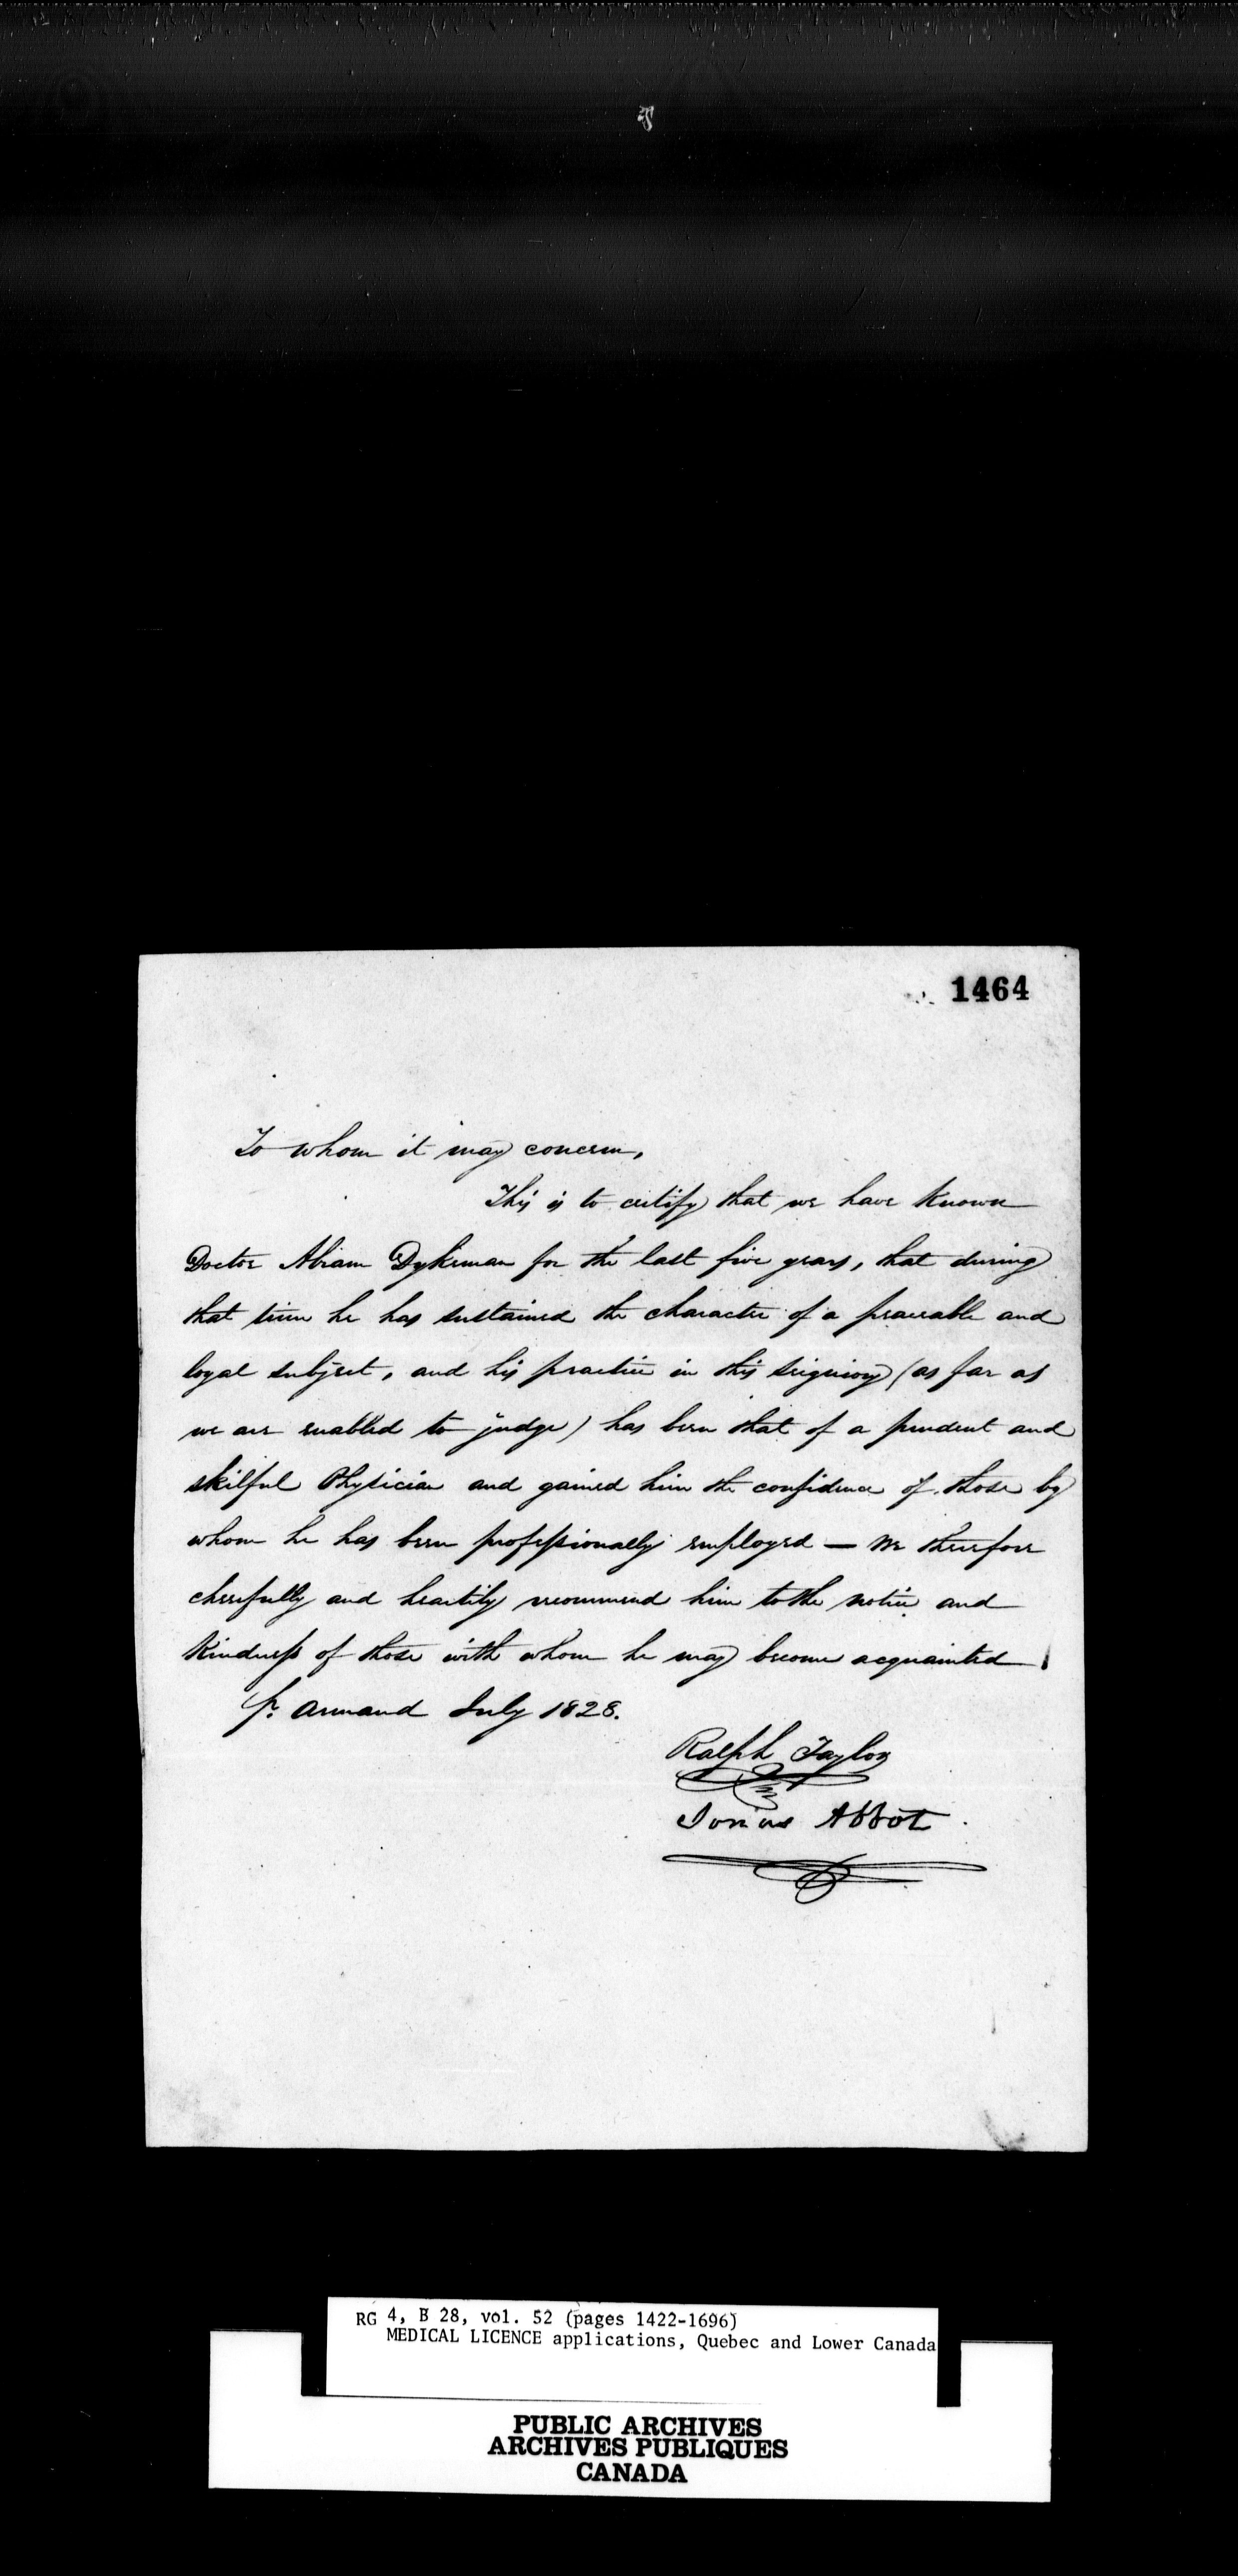 1464
To whom it may concern,
This is to certify that we have known
Doctor Abram Dykeman for the last five years, that during
that time he has sustained the character of a peaceable and
loyal subject, and his practice in this seigniory (as far as
we are enabled to judge) has been that of a prudent and
skilful Physician and gained him the confidence of those by
whom he has been professionally employed — We therefore
cheerfully and heartily recommend him to the notice and
kindness of those with whom he may become acquainted
St. Armand July 1828.
Ralph Taylor
Abbot
RG 4, B 28, vol. 52 (pages 1422-1696)
MEDICAL LICENCE applications, Quebec and Lower Canada
PUBLIC ARCHIVES
ARCHIVES PUBLIQUES
CANADA